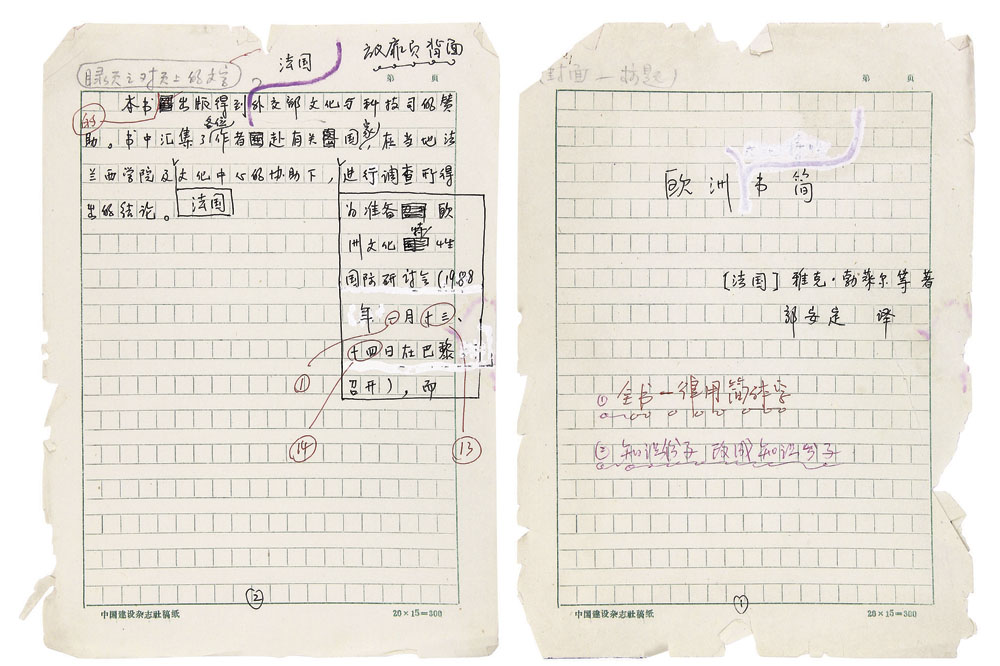 放扉页背面
法国
第 页
本书出版得到外交部文化与科技司的赞
的
助。书中汇集了各位作者赴有关国家,在当地法
兰西学院及文化中心的协助下,进行调查所得
出的结论。
法国
为准备欧
洲文化特性
国际研讨会(1988
年一月十三、
十四日在巴黎
召开),而
① ⑭ ⑬
②
中国建设杂志社稿纸 20×15=300
第 页
欧洲书简
[法国]雅克·勃莱尔等著
郭安定 译
① 全书一律用简体字
② 知识份子改成知识分子
①
中国建设杂志社稿纸 20×15=300